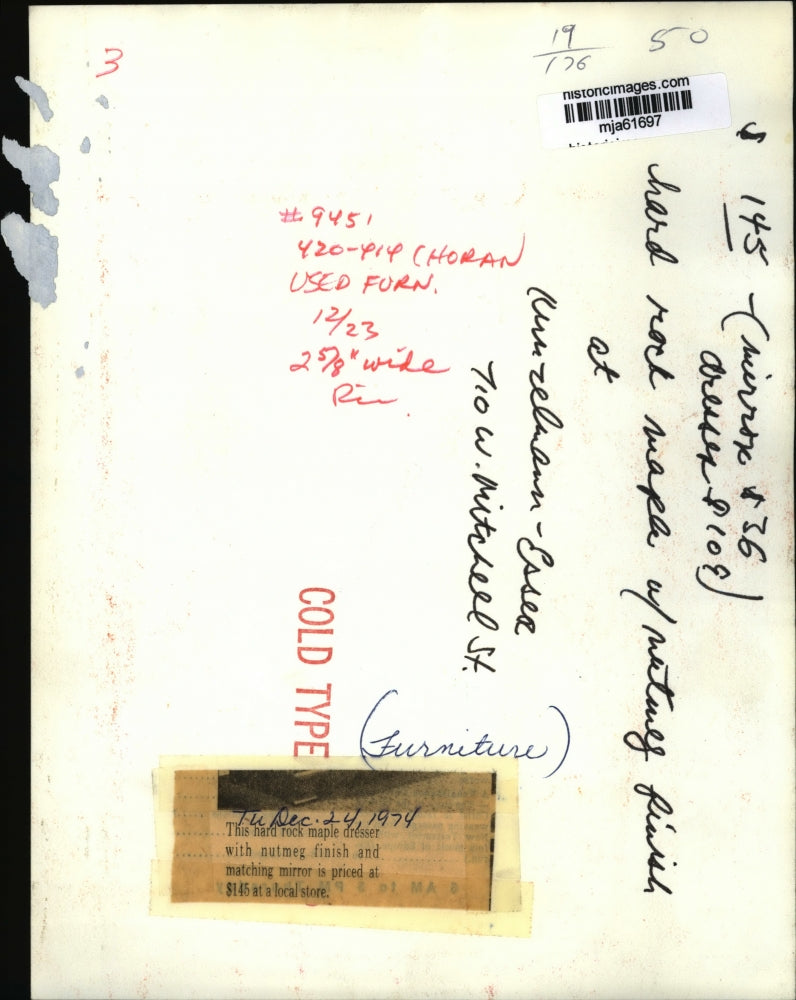 3
19
176
50
historicimages.com
mja61697
$ 145 - (mirror $36
dresser $109)
hard rock maple w/ nutmeg finish
at
Kunzelmann-Esser
710 W. Mitchell St.
#9451
420-414 (HORAN
USED FURN.
12/23
2 5/8" wide
COLD TYPE
(Furniture)
Tu Dec. 24, 1974
This hard rock maple dresser
with nutmeg finish and
matching mirror is priced at
$145 at a local store.